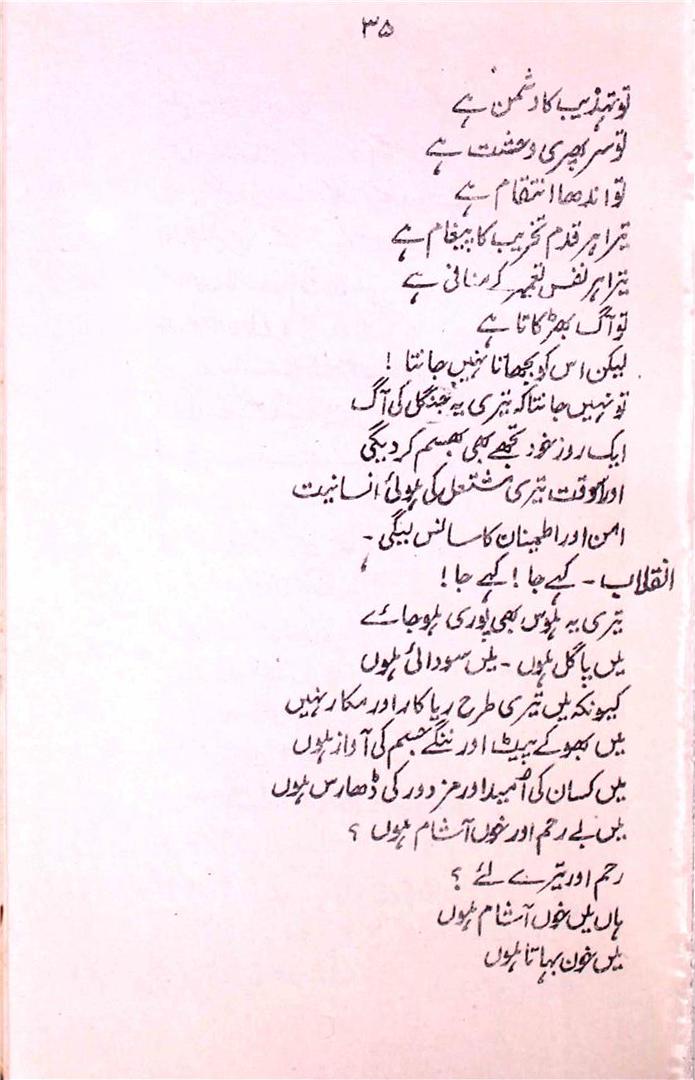 ۳۵
تو تہذیب کا دشمن ہے
تو سر پھری وحشت ہے
تو اندھا انتقام ہے
تیرا ہر قدم تخریب کا پیغام ہے
تیرا ہر نفس تعمیر کے منافی ہے
تو آگ بھڑکاتا ہے
لیکن اس کو بجھانا نہیں جانتا !
تو نہیں جانتا کہ تیری یہ جنگل کی آگ
ایک روز خود تجھے بھی بھسم کر دیگی
اور اسوقت تیری مشتعل کی ہوئی انسانیت
امن اور اطمینان کا سانس لیگی ۔
انقلاب ۔ کہے جا ! کہے جا !
تیری یہ ہوس بھی پوری ہو جائے
میں پاگل ہوں ۔ میں سودائی ہوں
کیونکہ میں تیری طرح ریا کار اور مکار نہیں
میں بھوکے پیٹ اور ننگے جسم کی آواز ہوں
میں کسان کی اُمید اور مزدور کی ڈھارس ہوں
میں بے رحم اور خوں آشام ہوں ؟
رحم اور تیرے لئے ؟
ہاں میں خوں آشام ہوں
میں خون بہاتا ہوں